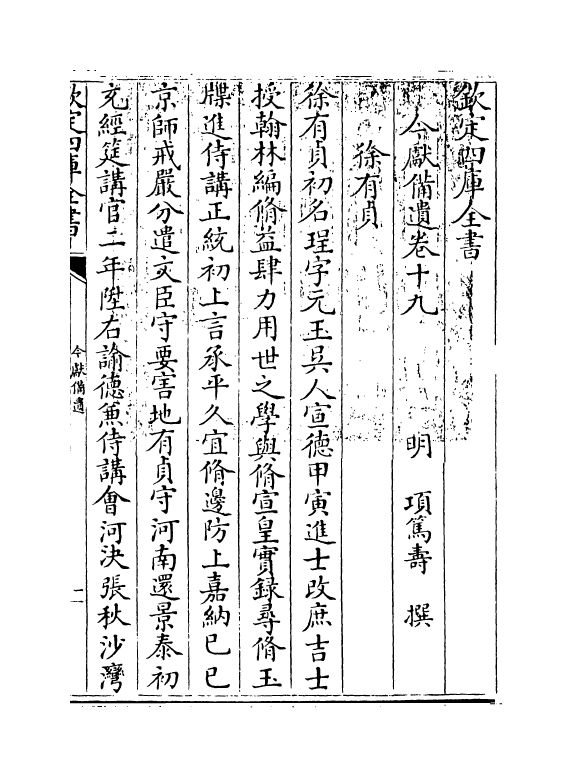 欽定四庫全書
今獻備遺卷十九　　　明　項篤壽　撰
徐有貞
徐有貞初名珵字元玉吳人宣德甲寅進士改庶吉士
授翰林編脩益肆力用世之學與脩宣皇實錄尋脩玉
牒進侍講正統初上言承平久宜脩邊防上嘉納已巳
京師戒嚴分遣文臣守要害地有貞守河南還景泰初
充經筵講官二年陞右諭德兼侍講會河決張秋沙灣
欽定四庫全書
今獻備遺